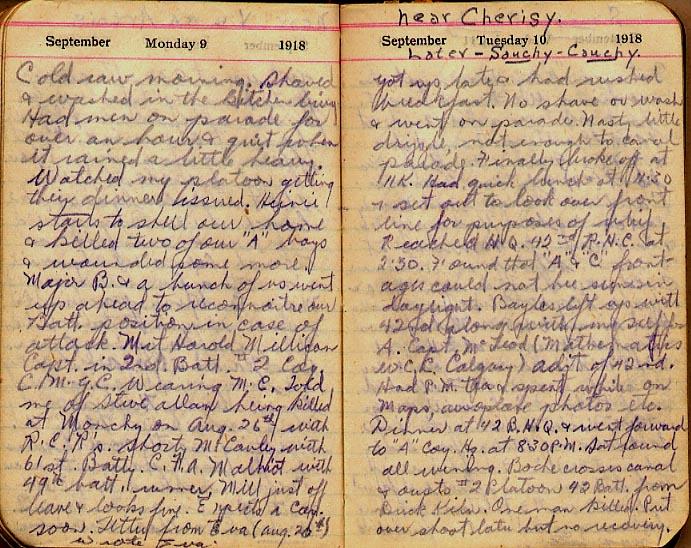 September Monday 9 1918
Cold raw morning. Shaved
& washed in the bitchen biwy
Had men on parade for
over an hour & quit when
it rained a little heavy.
Watched my platoon getting
their dinner issued. Heinie
starts to shell our home
& killed two of our "A" boys
& wounded some more.
Major B. & a bunch of us went
up ahead to reconnoitre our
Batt. position in case of
attack. Met Harold Millican
Capt. in 2nd. Batt. #2 Coy.
C.M.G.C. Wearing M.C. Told
me of Steve Allan being killed
at Monchy on Aug. 26th with
R.C.R's. Shorty McCauley with
61st. Batty. C.F.A. Malhot with
49th batt. runner. Mill just off
leave & looks fine. Expects a Can.
soon. Letter from Eva (Aug. 20th)
wrote Eva.
near Cherisy.
September Tuesday 10 1918
Later - Sauchy-Cauchy.
Got up late & had rushed
breakfast. No shave or wash
& went on parade. Nasty little
drizzle, not enough to cancel
parade. Finally broke off at
11K. Had quick lunch at 11:30
& set out to look over front
line for purposes of relief.
Reached H.Q. 42nd R.H.C. at
2:30. Found that "A" & "C" front-
ages could not be seen in
daylight. Bayles left up with
42nd along with
A. Capt. McLeod (Mathematics
W.C.C. Calgary) adjt of 42nd.
Had P.M. tea & spent while on
Maps, aeroplane photos etc.
Dinner at 42 B.H.Q. & went forward
to "A" Coy. Hq. at 8:30 P.M. Sat round
all evening. Boche crosses canal
& ousts #2 Platoon 42 Batt. from
Brick Kiln. One man killed. Put
over shoot later but no recovery.